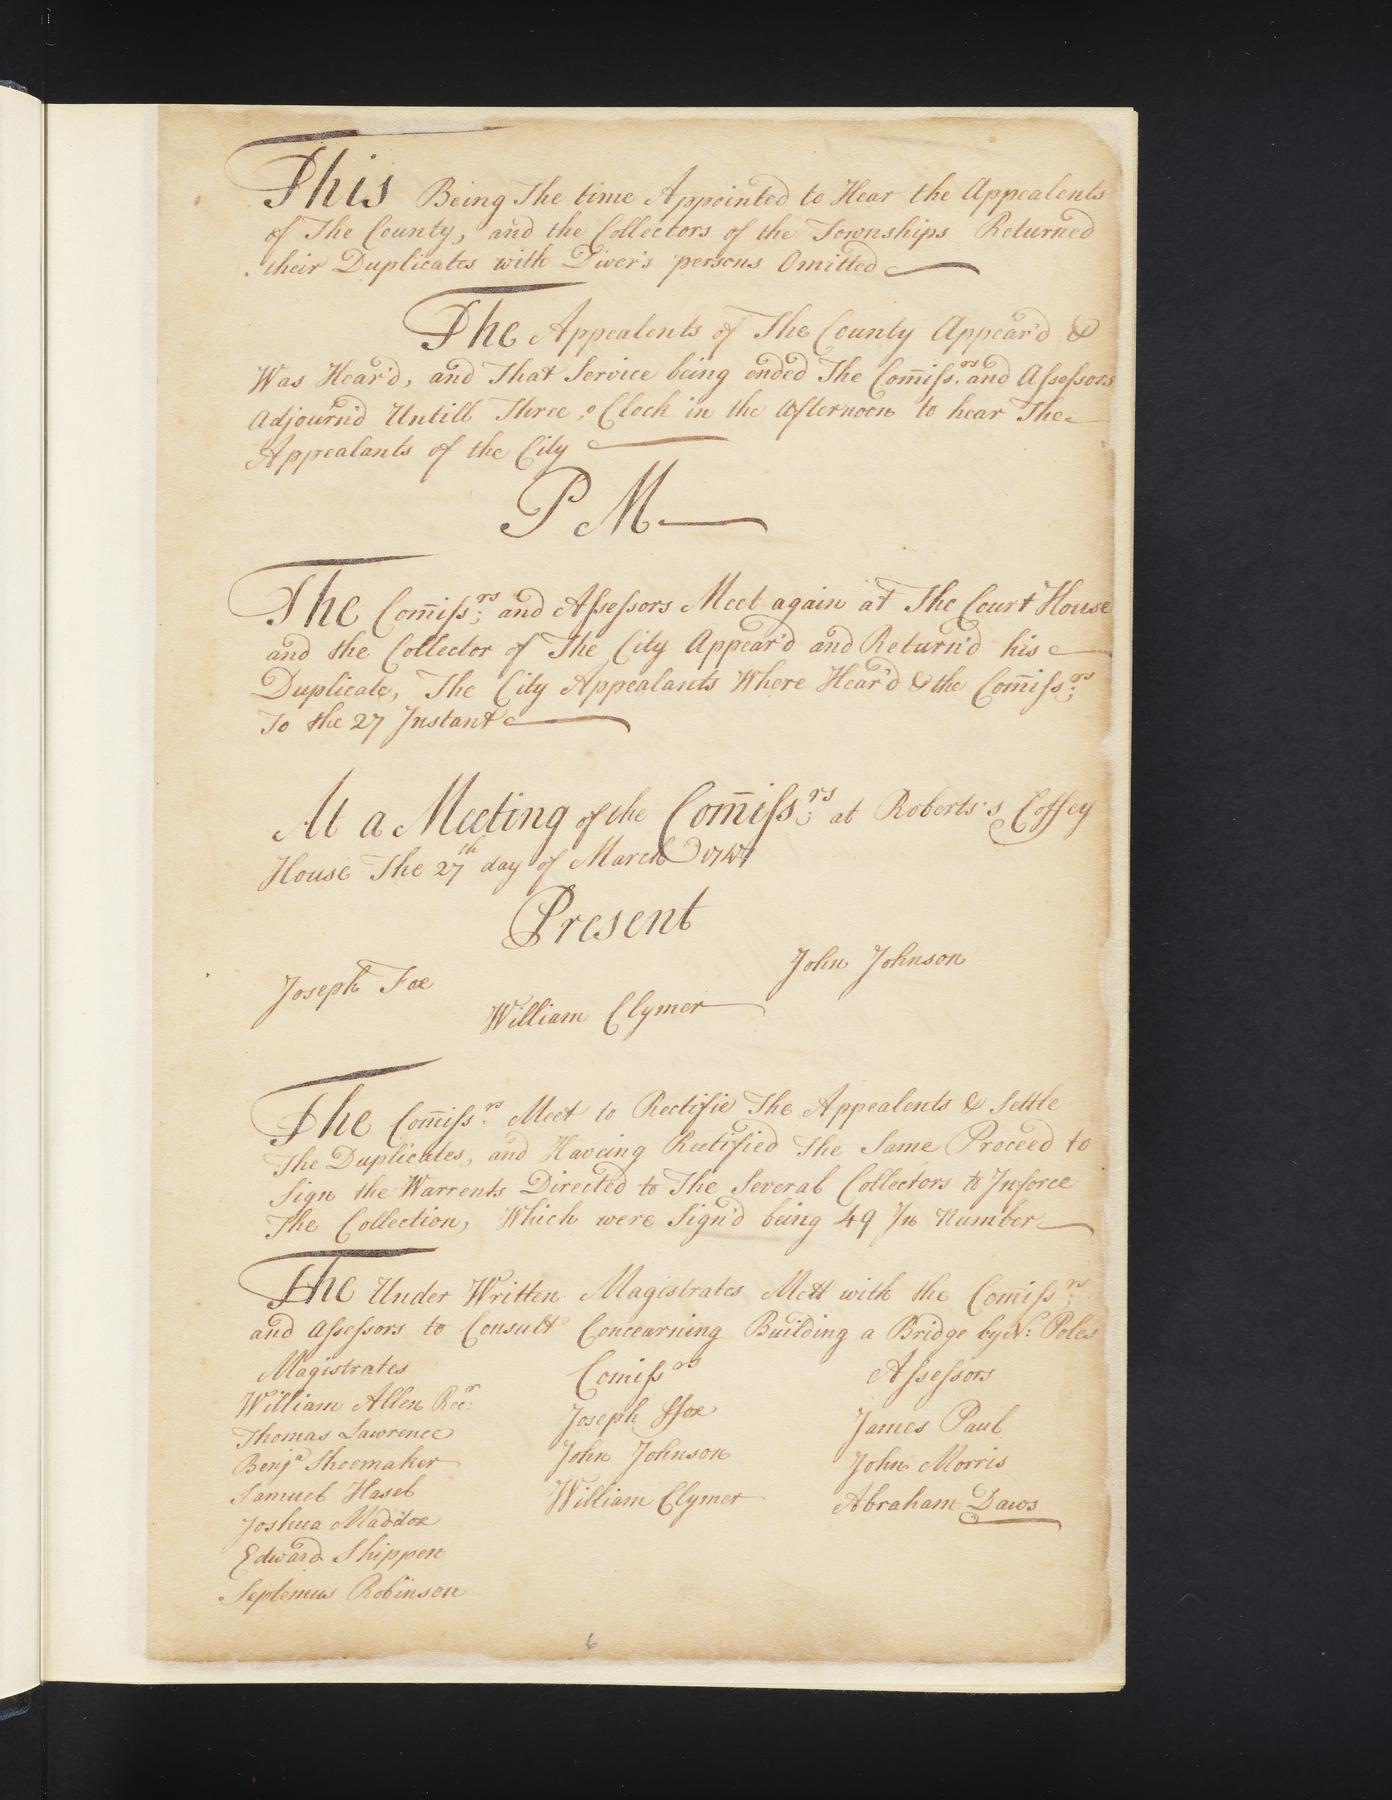 This Being The time Appointed to Hear the Appealents
of The County, and the Collectors of the Townships Returned
their Duplicates with Diver's persons Omitted
The Appealents of The County Appear'd &
Was Hear'd, and That Service being ended The Com̄iſs.rs and Aſseſsors
Adjourn'd Untill Three o Clock in the Afternoon to hear The
Appealants of the City
P M
The Com̄iſs;rs and Aſseſsors Meet again at The Court House
and the Collector of The City Appear'd and Return'd his
Duplicate, The City Appealants Where Hear'd & the Com̄iſs;rs
To the 27 Instant
At a Meeting of the Com̄iſs;rs at Roberts's Coffey
House The 27th day of March 1747
Present
John Johnson
Joseph Fox
William Clymer
The Com̄iſs.rs Meet to Rectifie The Appealents & Settle
The Duplicates, and Haveing Rectified The Same Proceed to
Sign the Warrents Directed to The Several Collectors to Inforce
The Collection, Which were Sign'd being 49 In Number
The Under Written Magistrates Mett with the Comiſs;rs
and Aſseſsors to Consult Concearning Building a Bridge by N: Poles
Magistrates Comiſsrs Aſseſsors
William Allen Recr: Joseph ffox James Paul
Thomas Lawrence John Johnson John Morris
Benja Shoemaker William Clymer Abraham Daws
Samuel Hasel
Joshua Maddox
Edward Shippen
Septemus Robinson
6